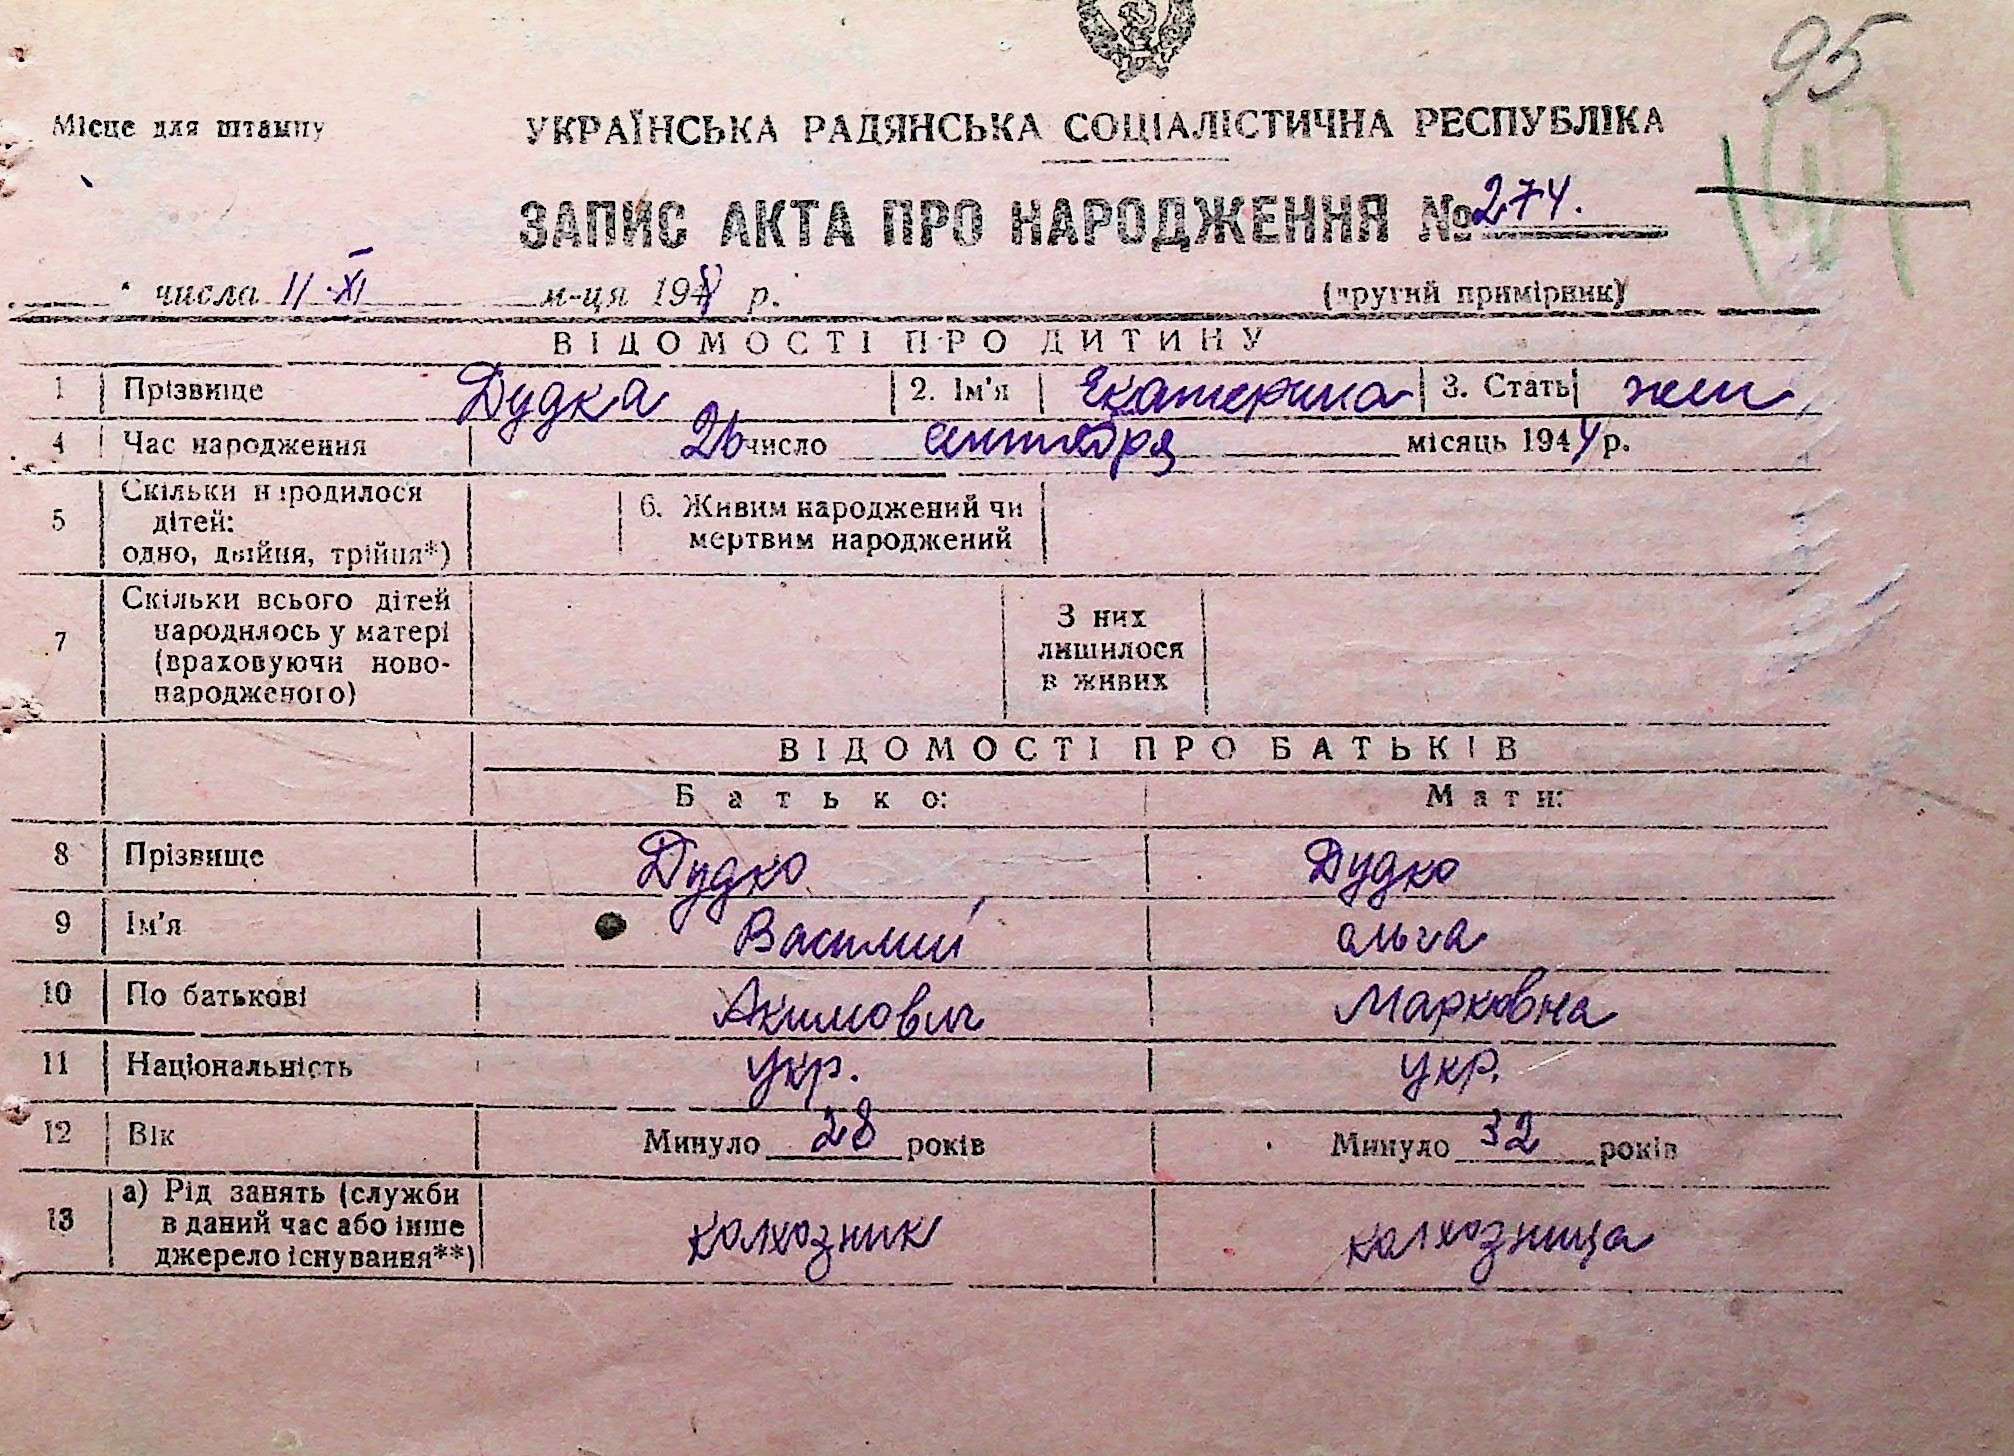 95
Місце для штампу
УКРАЇНСЬКА РАДЯНСЬКА СОЦІАЛІСТИЧНА РЕСПУБЛІКА
ЗАПИС АКТА ПРО НАРОДЖЕННЯ № 274.
числа 11·XI м-ця 1944 р. (другий примірник)
ВІДОМОСТІ ПРО ДИТИНУ
1 Прізвище Дудка 2. Ім'я Екатерина 3. Стать жен
4 Час народження 26 число сентября місяць 1944 р.
5 Скільки народилося дітей: одно, двійня, трійця*) 6. Живим народжений чи мертвим народжений
7 Скільки всього дітей народилось у матері (враховуючи ново-народженого) З них лишилося в живих
ВІДОМОСТІ ПРО БАТЬКІВ
Батько: Мати:
8 Прізвище Дудко Дудко
9 Ім'я Василий Ольга
10 По батькові Акимович Марковна
11 Національність укр. укр.
12 Вік Минуло 28 років Минуло 32 років
13 а) Рід занять (служби в даний час або інше джерело існування**) колхозник колхозница